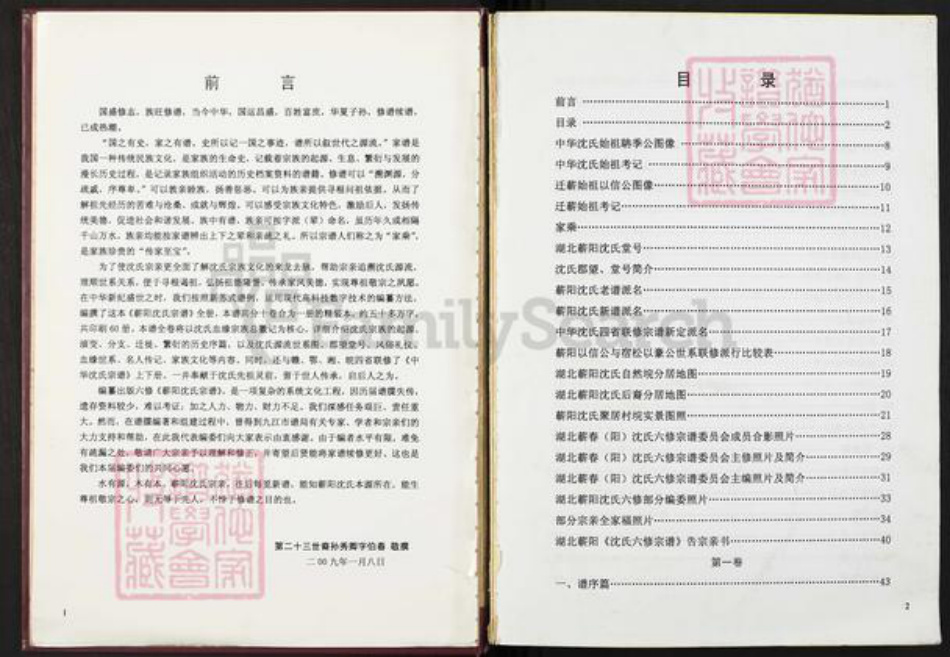 前 言
国盛修志，族旺修谱，当今中华，国运昌盛，百姓富庶，华夏子孙，修谱续谱，
已成热潮。
“国之有史，家之有谱，史所以记一国之事迹，谱所以叙世代之源流。”家谱是
我国一种传统民族文化，是家族的生命史，记载着宗族的起源、生息、繁衍与发展的
漫长历史过程，是记录家族组织活动的历史档案资料的谱籍。修谱可以“溯渊源，分
疏戚，序尊卑。”可以敦亲睦族，扬善惩恶。可以为族亲提供寻根问祖依据，从而了
解祖先经历的苦难与沧桑，成就与辉煌，可以感受宗族文化特色，激励后人，发扬传
统美德，促进社会和谐发展。族中有谱，族亲可按字派（辈）命名，虽历年久或相隔
千山万水，族亲均能按家谱辨出上下之辈和亲疏之礼。所以宗谱人们称之为“家乘”，
是家族珍贵的“传家至宝”。
为了使沈氏宗亲更全面了解沈氏宗族文化的来龙去脉，帮助宗亲追溯沈氏源流，
理顺世系关系，便于寻根谒祖，弘扬祖德隆誉，传承家风美德，实现尊祖敬宗之夙愿。
在中华新纪盛世之时，我们按照新形式谱例，运用现代高科技数字技术的编纂方法，
编撰了这本《蕲阳沈氏宗谱》全册，本谱共分十卷合为一册的精装本，约五十多万字，
共印刷60册。本谱全卷将以沈氏血缘宗族总徽记为核心，详细介绍沈氏宗族的起源、
演变、分支、迁徙、繁衍的历史序篇，以及沈氏源流世系图、郡望堂号、风俗礼仪、
血缘世系、名人传记、家族文化等内容。同时，还与赣、鄂、湘、皖四省联修了《中
华沈氏宗谱》上下册，一并奉献于沈氏先祖灵前，留于世人传承，启后人之为。
编纂出版六修《蕲阳沈氏宗谱》，是一项复杂的系统文化工程，因历届谱牒失传，
遗存资料较少，难以考证，加之人力、物力、财力不足，我们深感任务艰巨、责任重
大。然而，在谱牒编著和组建过程中，曾得到九江市谱局有关专家、学者和宗亲们的
大力支持和帮助，在此我代表编委们向大家表示由衷感谢。由于编者水平有限，难免
有疏漏之处，敬请广大宗亲予以理解和修正，并寄望后贤能将家谱续修更好，这也是
我们本届编委们的共同心愿。
水有源，木有本，蕲阳沈氏宗亲，往后每览新谱，能知蕲阳沈氏本源所在，能生
尊祖敬宗之心，则无辱于先人，不悖于修谱之目的也。
第二十三世裔孙秀卿字伯春 敬撰
二00九年一月八日
1
目 录
前言 1
目录 2
中华沈氏始祖聃季公图像 8
中华沈氏始祖考记 9
迁蕲始祖以信公图像 10
迁蕲始祖考记 11
家乘 12
湖北蕲阳沈氏堂号 13
沈氏郡望、堂号简介 14
蕲阳沈氏老谱派名 15
蕲阳沈氏新谱派名 16
中华沈氏四省联修宗谱新定派名 17
蕲阳以信公与宿松以兼公世系联修派行比较表 18
湖北蕲阳沈氏自然垸分居地图 19
湖北蕲阳沈氏后裔分居地图 20
蕲阳沈氏聚居村垸实景图照 21
湖北蕲春（阳）沈氏六修宗谱委员会成员合影照片 28
湖北蕲春（阳）沈氏六修宗谱委员会主修照片及简介 29
湖北蕲春（阳）沈氏六修宗谱委员会主编照片及简介 31
湖北蕲阳沈氏六修部分编委照片 33
部分宗亲全家福照片 34
湖北蕲阳《沈氏六修宗谱》告宗亲书 40
第一卷
一、谱序篇 43
2
FamilySearch